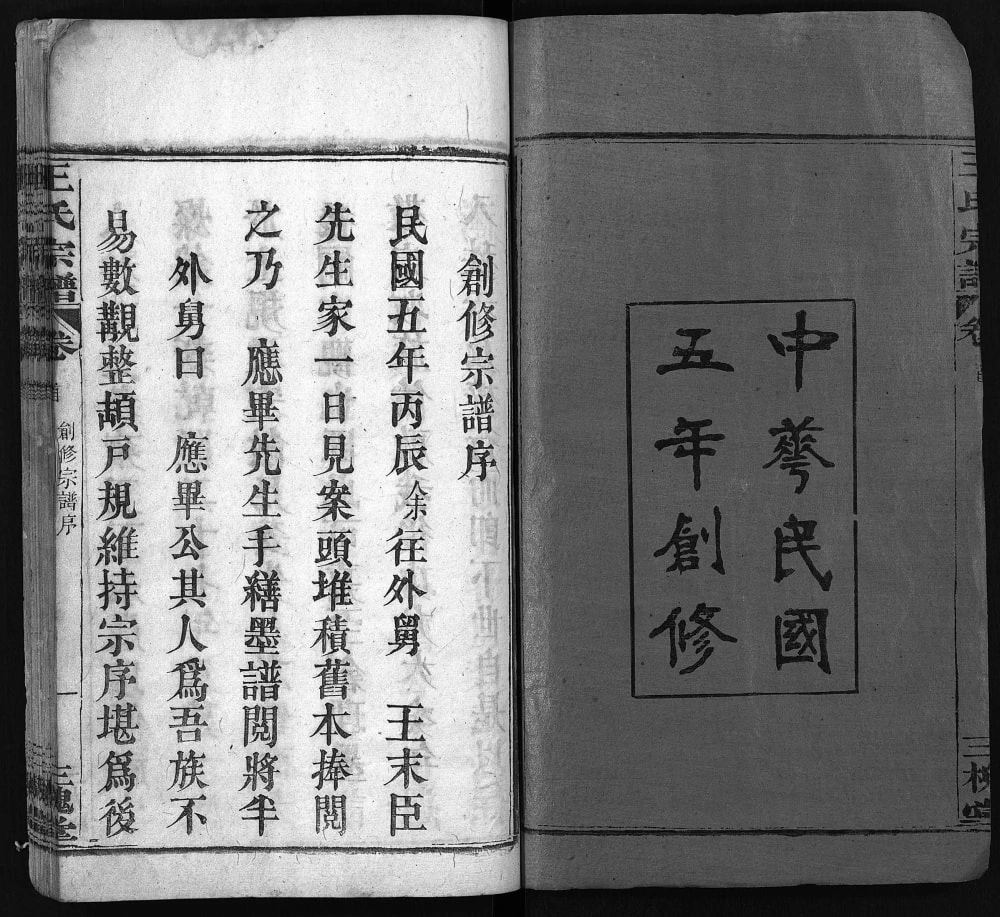 王氏宗譜
卷
三槐堂
中華民國
五年創修
創修宗譜序
民國五年丙辰余往外舅　王末臣
先生家一日見案頭堆積舊本捧閱
之乃　應畢先生手繕墨譜閱將半
外舅曰　應畢公其人爲吾族不
易數觀整頡戸規維持宗序堪爲後
王氏宗譜
卷
首
創修宗譜序
一
三槐堂